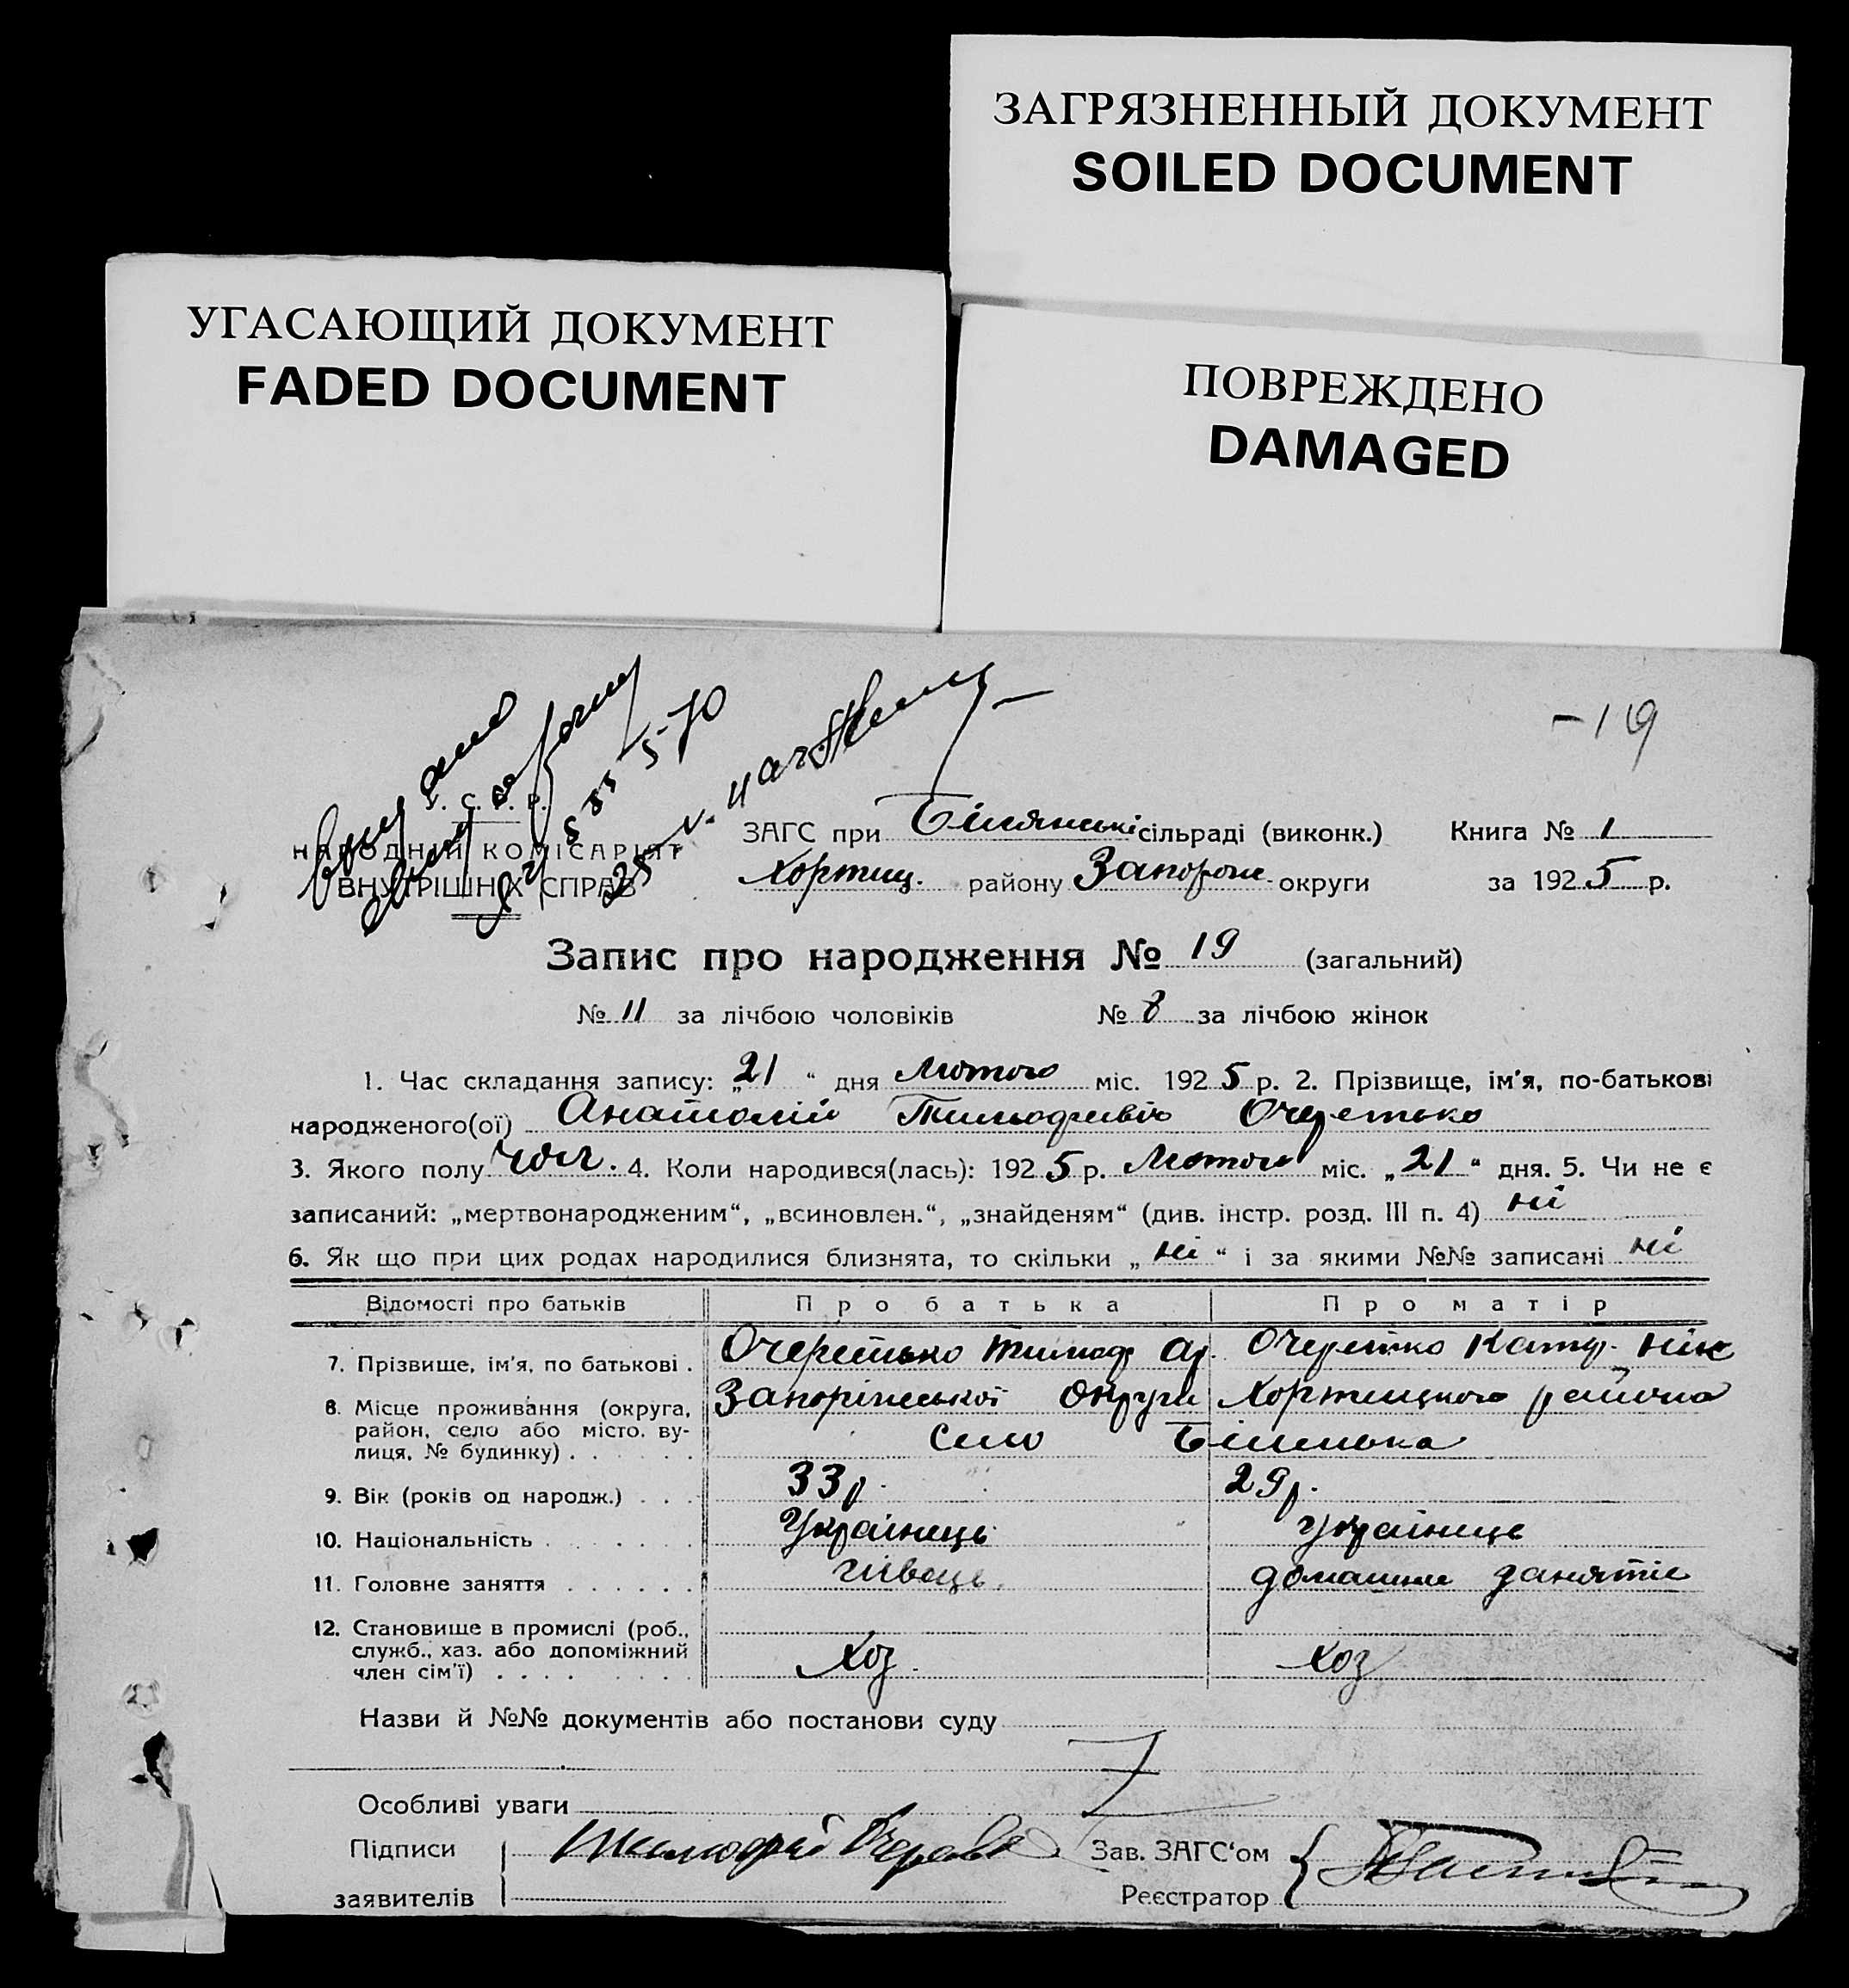 ЗАГРЯЗНЕННЫЙ ДОКУМЕНТ
SOILED DOCUMENT
УГАСАЮЩИЙ ДОКУМЕНТ
FADED DOCUMENT
ПОВРЕЖДЕНО
DAMAGED
-19
У. С. Р. Р.
НАРОДНІЙ КОМІСАРІЯТ
ВНУТРІШНІХ СПРАВ
ЗАГС при Білянські сільраді (виконк.) Книга № 1
Хортиц. району Запорож. округи за 1925 р.
Запис про народження № 19 (загальний)
№ 11 за лічбою чоловіків № 8 за лічбою жінок
1. Час складання запису: „21“ дня Лютого міс. 1925 р. 2. Прізвище, ім'я, по-батькові
народженого(ої) Анатолій Тимофивіч Очеретько
3. Якого полу чол. 4. Коли народився(лась): 1925 р. Лютого міс. „21“ дня. 5. Чи не є
записаний: „мертвонародженим“, „всиновлен.“, „знайденям“ (див. інстр. розд. III п. 4) ні
6. Як що при цих родах народилися близнята, то скільки „ні“ і за якими №№ записані ні
Відомості про батьків Про батька Про матір
7. Прізвище, ім'я, по батькові . Очеретько Тимоф Ар. Очеретко Катр. Ник
8. Місце проживання (округа, Запоріжської округи Хортицкого района
район, село або місто, ву- село Біленька
лиця, № будинку) . . . . . .
9. Вік (років од народж.) . . . 33 р. 29 р.
10. Національність . . . . . . . Українець українце
11. Головне заняття . . . . . . домашне заняття
12. Становище в промислі (роб.,
служб., хаз. або допоміжний Хоз. хоз
член сім'ї) . . . . . . . .
Назви й №№ документів або постанови суду
Особливі уваги
Підписи Тимофій Зав. ЗАГС'ом
заявителів Реєстратор